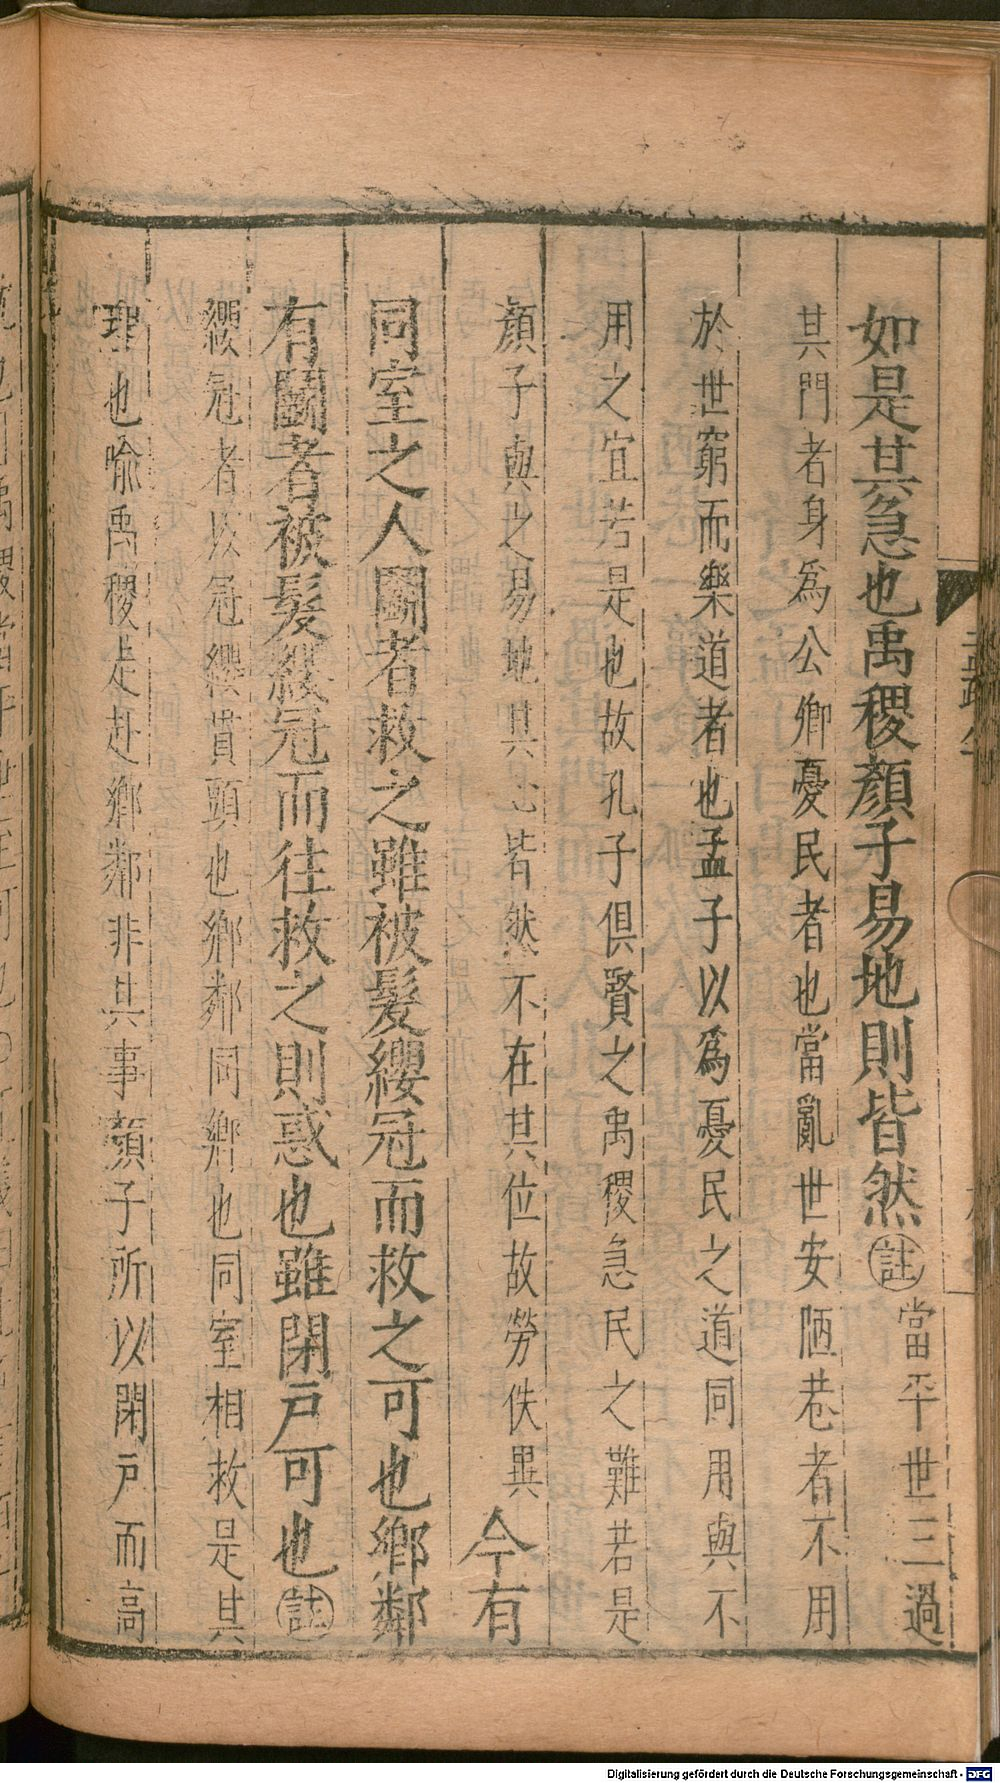 如是其急也禹稷顏子易地則皆然註當平世三過
其門者身爲公卿憂民者也當亂世安陋巷者不用
於世窮而樂道者也孟子以爲憂民之道同用與不
用之宜若是也故孔子俱賢之禹稷急民之難若是
顏子與之易地其心皆然不在其位故勞佚異今有
同室之人鬭者救之雖被髮纓冠而救之可也鄉鄰
有鬭者被髮纓冠而往救之則惑也雖閉戶可也註
纓冠者以冠纓貫頭也鄉鄰同鄉也同室相救是其
理也喻禹稷走赴鄉鄰非其事顏子所以閉戶而高
Digitalisierung gefördert durch die Deutsche Forschungsgemeinschaft - DFG